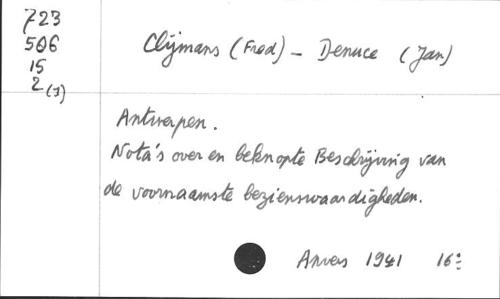 723
506
15
2 (J)
Clijmans (Fred) - Denuce (Jan)
Antwerpen.
Nota's over en beknopte Beschrijving van
de voornaamste bezienswaardigheden.
Anvers 1941 16: